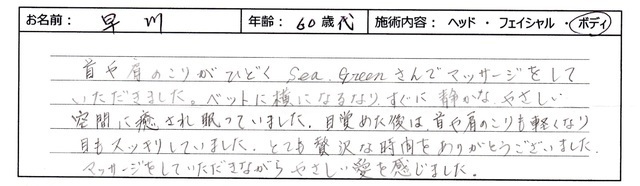 お名前： 早川 年齢：60歳代 施術内容：ヘッド ・ フェイシャル ・ ボディ
首や肩のこりがひどく Sea.Greenさんでマッサージをして
いただきました。ベットに横になるなり、すぐに静かな、やさしい
空間に癒され眠っていました。目覚めた後は首や肩のこりも軽くなり
目もスッキリしていました。とても贅沢な時間をありがとうございました。
マッサージをしていただきながらやさしい愛を感じました。